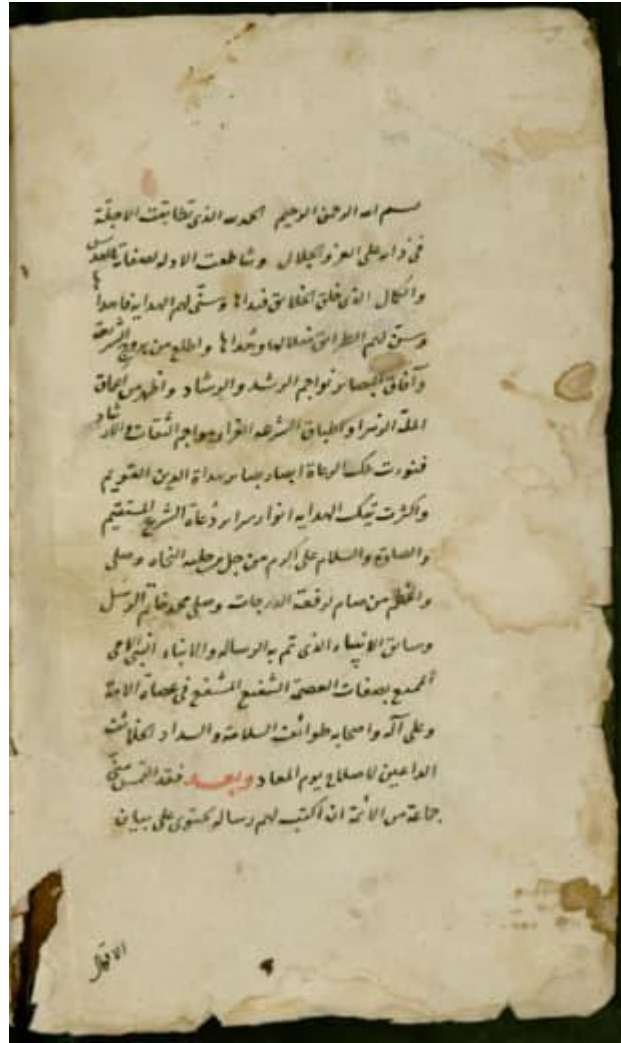 بسم الله الرحمن الرحيم الحمد لله الذى تطابقت الاجلة
فى دار على العز والجلال وشاطعت الادله لصفات
والكمال الذى خلق الخلائق فبداها وسنى لهم الهدايه فاهداها
وسن لهم الطرائق واطلع من بروج الشريعة
وآفاق البصائر نواجم الرشد والارشاد واظهر من
المله الزهرا واطباق الشرعه الغرا
فنورت تلك ابصار بصائر هداة الدين القويم
واكثرت تلك الهدايه انوار سراير دعاة الشرع المستقيم
والصلوة والسلام على اكرم من وصلى
من صام لرفعت الدرجات وصلى محمد خاتم الرسل
وسائق الانبياء الذى تم به الرساله والانباء النبى الامى
بصفات العصمة الشفيع المشفع فى عصاة الامة
وعلى آله واصحابه طوائف السلامة والسداد
الداعين لاصلاح يوم المعاد وبعد فقد التمس منى
جماعة من الائمة ان اكتب لهم رساله يحتوى على بيان